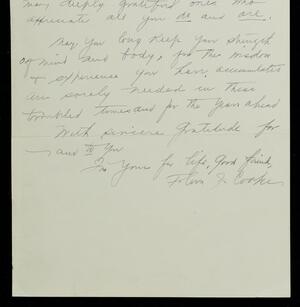 many deeply grateful ones who
appreciate all you do and are.
May you long keep your strength
of mind and body, for the wisdom
+ experience you have accumulated
are sorely needed in these
troubled times and for the years ahead
With sincere gratitude for
and to you
Yours for life, good friend,
J. Cooke